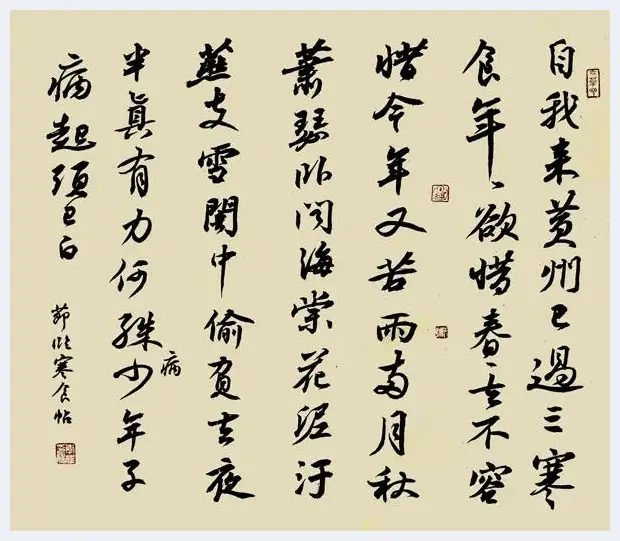 自我来黄州已過三寒
食年々欲惜春春去不容
惜今年又苦雨两月秋
蕭瑟卧闻海棠花泥汙
燕支雪闇中偷負去夜
半真有力何殊少年子
病
病起须已白
節临寒食帖